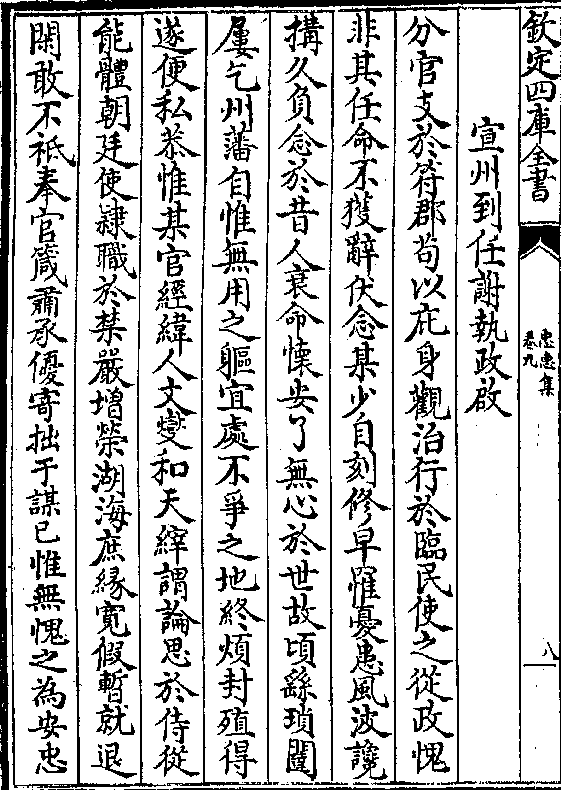 欽定四庫全書
忠惠集
卷九
八
宣州到任謝執政啟
分官支於符郡苟以庇身觀治行於臨民使之從政愧
非其任命不獲辭伏念某少自刻修早罹憂患風波讒
搆久負念於昔人衰命懷安了無心於世故頃繇瑣闥
屢乞州藩自惟無用之軀宜處不爭之地終煩封殖得
遂便私恭惟某官經緯人文燮和天縡謂論思於侍從
能體朝廷使隷職於禁嚴增榮湖海庶縁寛假暫就退
閑敢不祗奉官箴肅承優寄拙于謀已惟無愧之為安忠